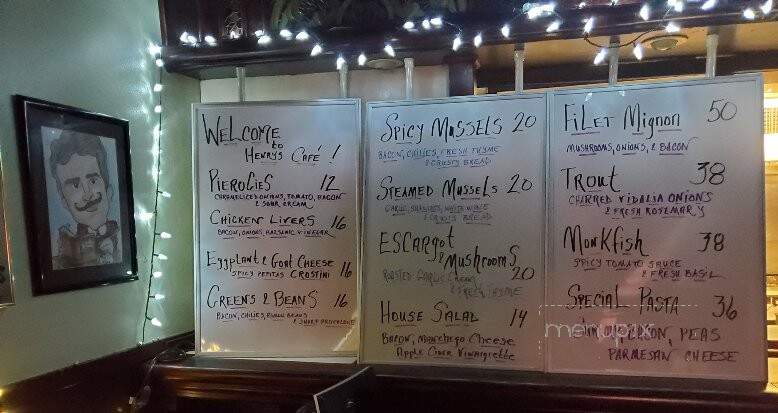 Welcome
to
Henrys Café!
Pierogies 12
Caramelized onions, tomato, bacon
& sour cream
Chicken Livers 16
Bacon, onions, balsamic vinegar
Eggplant & Goat Cheese
Spicy pepitas crostini 16
Greens & Beans 16
Bacon, chilies, beans
& sharp provolone
Spicy Mussels 20
Bacon, chilies, fresh thyme
& crusty bread
Steamed Mussels 20
Garlic, shallots, white wine
& crusty bread
Escargot
& Mushrooms
Roasted garlic cream 20
& fresh thyme
House Salad 14
Bacon, Manchego Cheese
Apple Cider Vinaigrette
Filet Mignon 50
Mushrooms, onions, & bacon
Trout 38
Charred Vidalia onions
& fresh rosemary
Monkfish 38
Spicy tomato sauce
& fresh basil
Special Pasta 36
bacon, peas
Parmesan cheese
menupix